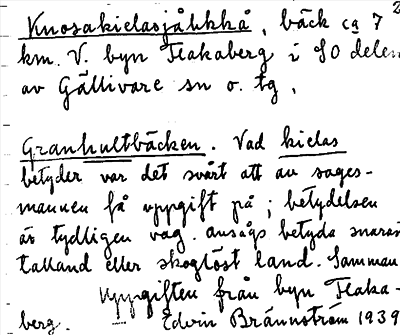 2
Kuosakielasjåkkå, bäck ca 7
km. V. byn Flakaberg i SO delen
av Gällivare sn o. tg.
Granhultbäcken. Vad kielas
betyder var det svårt att av sages-
mannen få uppgift på; betydelsen
är tydligen vag. ansågs betyda snarast
talland eller skoglöst land. Samman
Uppgiften från byn Flaka-
berg. — Edvin Brännström 1939